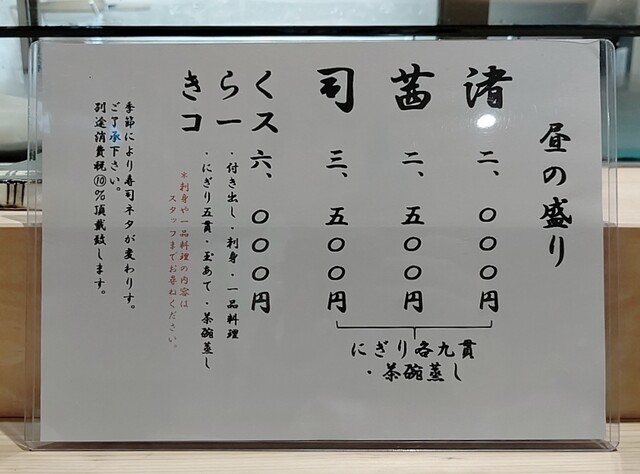 昼の盛り
渚 二、〇〇〇円
茜 二、五〇〇円
司 三、五〇〇円
にぎり各九貫
・茶碗蒸し
きらく
コース
六、〇〇〇円
・付き出し・刺身・一品料理
・にぎり五貫・玉あて・茶碗蒸し
*刺身や一品料理の内容は
スタッフまでお尋ねください。
季節により寿司ネタが変わりす。
ご了承下さい。
別途消費税⑩%頂戴致します。